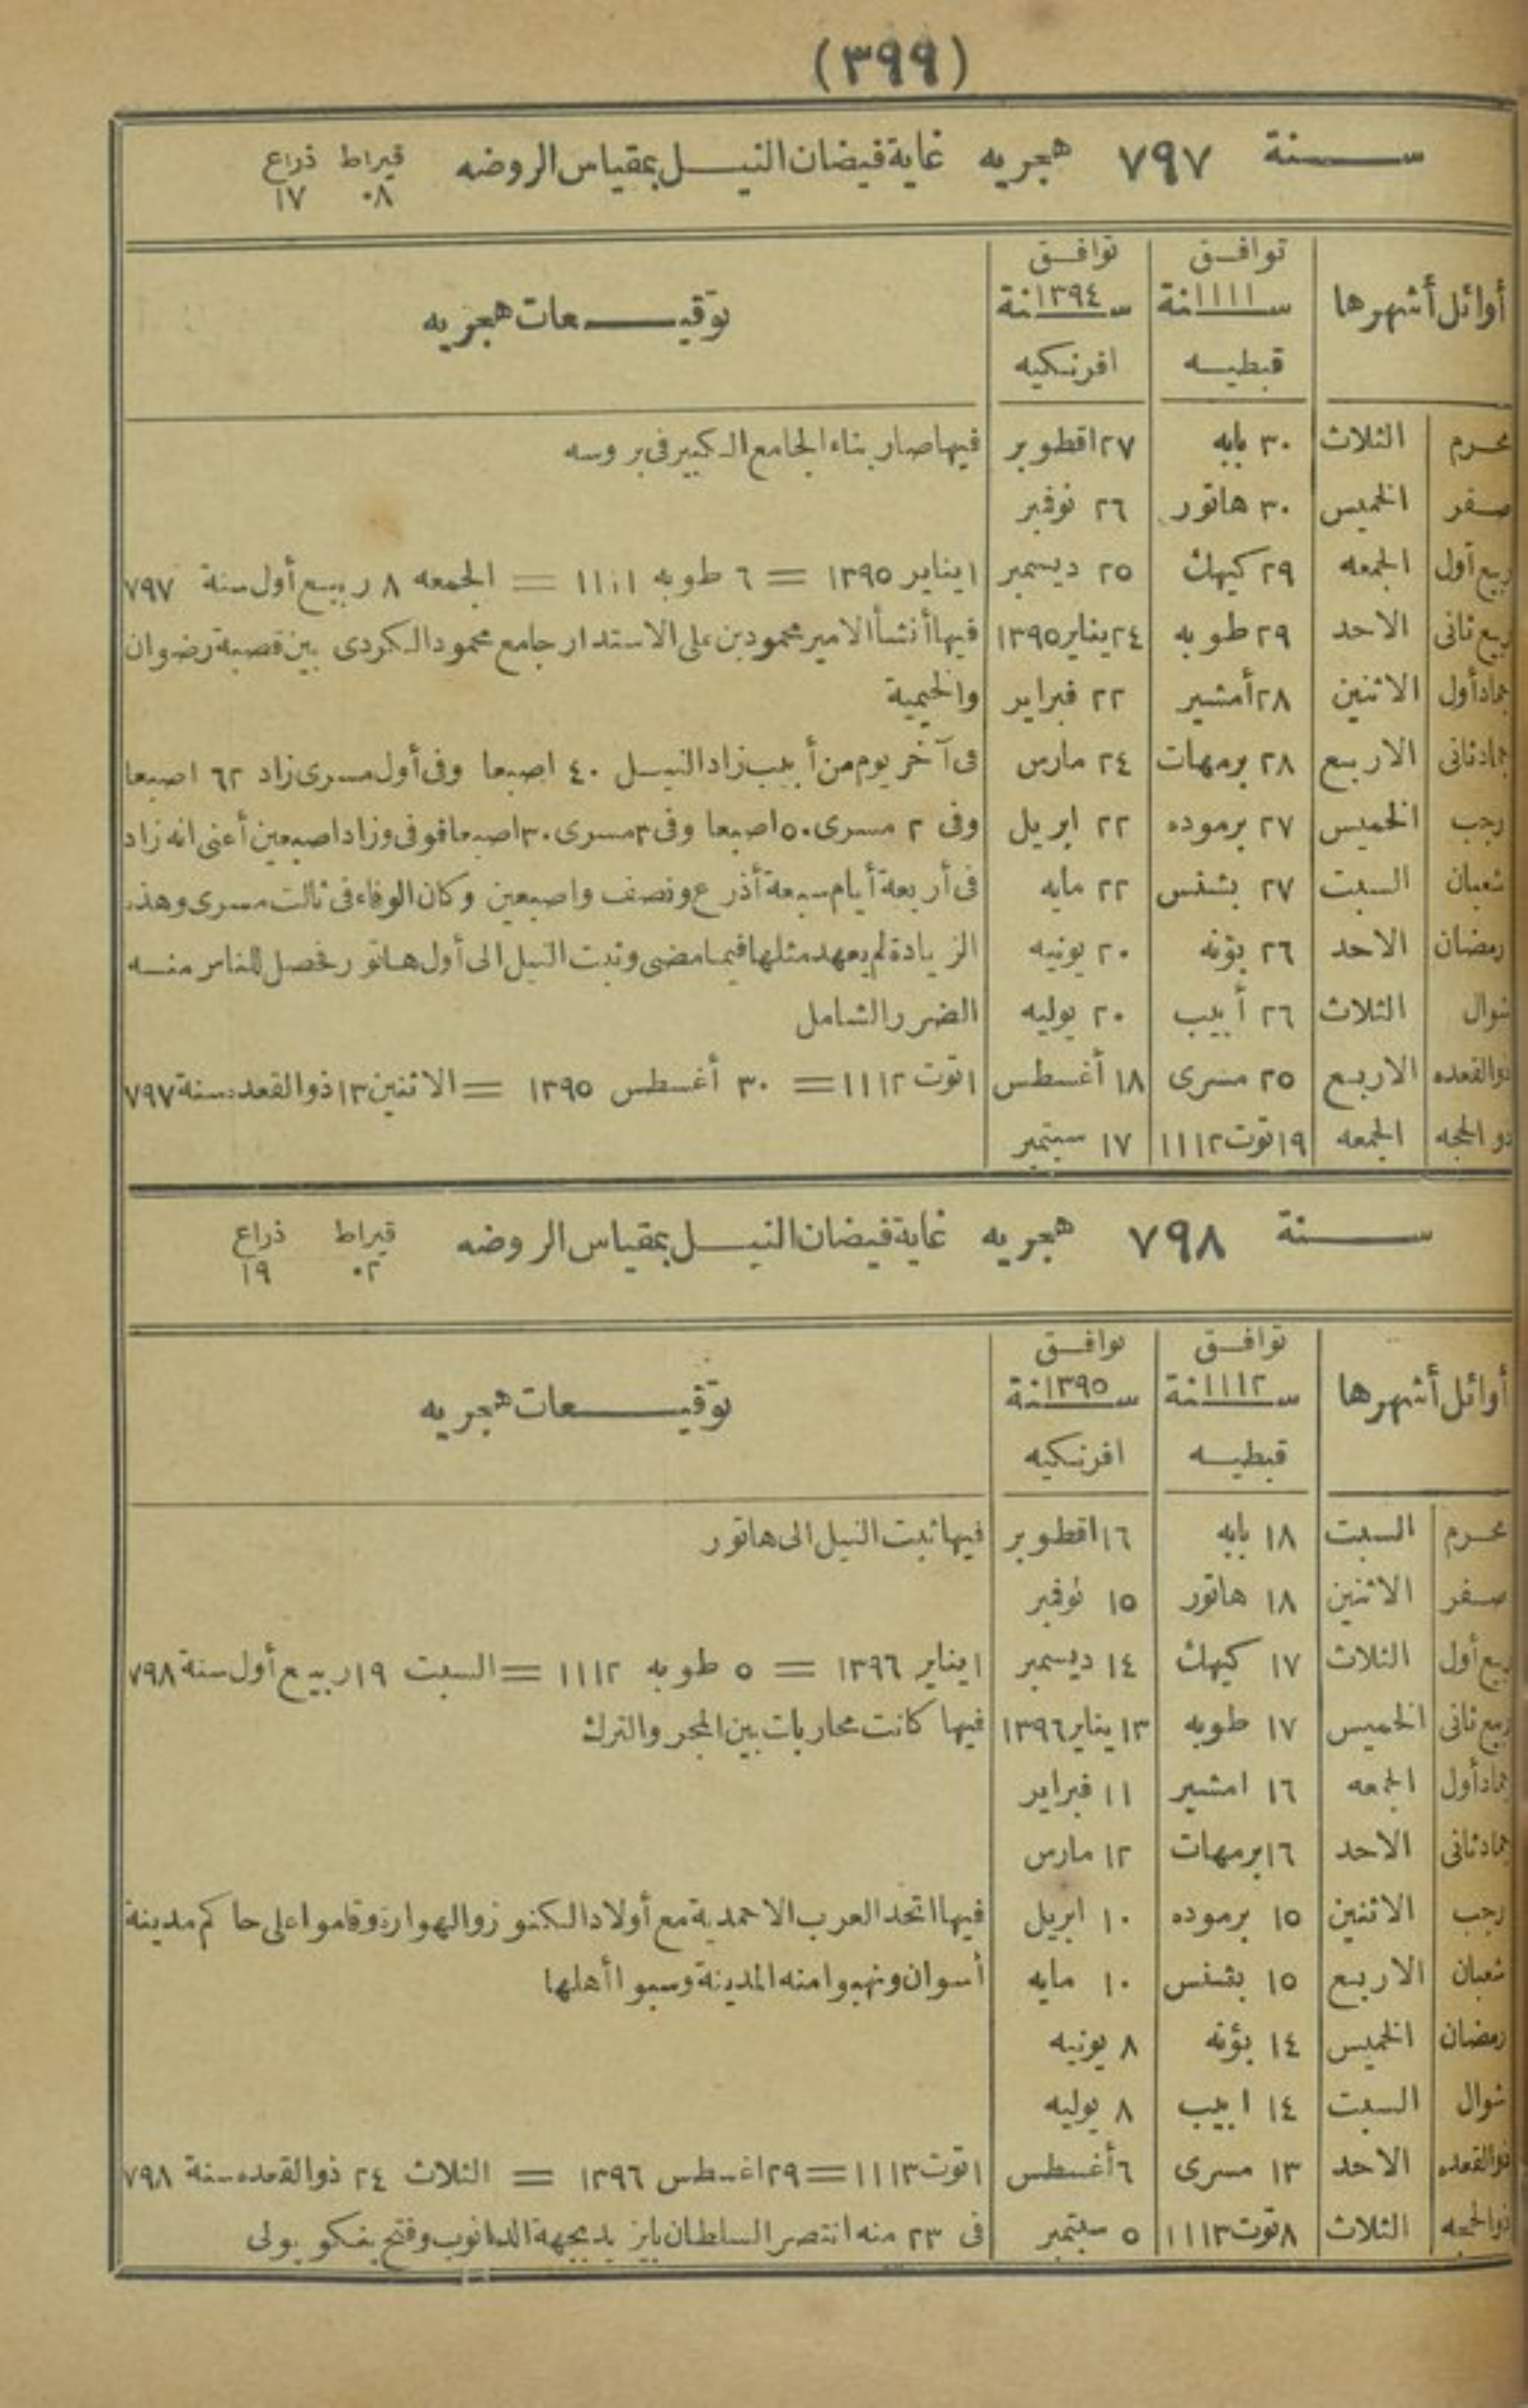 (٣٩٩)
سنة ٧٩٧ هجريه غاية فيضان النيل بمقياس الروضه قيراط ذراع
٠٨ ١٧
أوائل أشهرها توافق سنة ١١١١ قبطيه توافق سنة ١٣٩٤ افرنكيه توقيعات هجريه
محرم الثلاث ٣٠ بابه ٢٧ اقطوبر فيها صار بناء الجامع الكبير فى بروسه
صفر الخميس ٣٠ هاتور ٢٦ نوفمبر
ربيع أول الجمعه ٢٩ كيهك ٢٥ ديسمبر ١ يناير ١٣٩٥ = ٦ طوبه ١١١١ = الجمعه ٨ ربيع أول سنة ٧٩٧
ربيع ثانى الاحد ٢٩ طوبه ٢٤ يناير ١٣٩٥ فيها أنشأ الامير محمود بن على الاستدار جامع محمود الكردى بين قصبة رضوان
جماد أول الاثنين ٢٨ أمشير ٢٢ فبراير والخيمية
جماد ثانى الاربع ٢٨ برمهات ٢٤ مارس فى آخر يوم من أبيب زاد النيل ٤٠ اصبعا وفى أول مسرى زاد ٦٢ اصبعا
رجب الخميس ٢٧ برموده ٢٢ ابريل وفى ٢ مسرى ٥٠ اصبعا وفى ٣ مسرى ٣٠ اصبعا فوفى وزاد اصبعين أعنى انه زاد
شعبان السبت ٢٧ بشنس ٢٢ مايه فى أربعة أيام سبعة أذرع ونصف واصبعين وكان الوفاء فى ثالث مسرى وهذه
رمضان الاحد ٢٦ بؤنه ٢٠ يونيه الزيادة لم يعهد مثلها فيما مضى وثبت النيل الى أول هاتور فحصل للناس منه
شوال الثلاث ٢٦ أبيب ٢٠ يوليه الضرر الشامل
ذوالقعده الاربع ٢٥ مسرى ١٨ أغسطس ١ توت ١١١٢ = ٣٠ أغسطس ١٣٩٥ = الاثنين ١٣ ذوالقعده سنة ٧٩٧
ذوالحجه الجمعه ١٩ توت ١١١٢ ١٧ سبتمبر
سنة ٧٩٨ هجريه غاية فيضان النيل بمقياس الروضه قيراط ذراع
٠٢ ١٩
أوائل أشهرها توافق سنة ١١١٢ قبطيه توافق سنة ١٣٩٥ افرنكيه توقيعات هجريه
محرم السبت ١٨ بابه ١٦ اقطوبر فيها ثبت النيل الى هاتور
صفر الاثنين ١٨ هاتور ١٥ نوفمبر
ربيع أول الثلاث ١٧ كيهك ١٤ ديسمبر ١ يناير ١٣٩٦ = ٥ طوبه ١١١٢ = السبت ١٩ ربيع أول سنة ٧٩٨
ربيع ثانى الخميس ١٧ طوبه ١٣ يناير ١٣٩٦ فيها كانت محاربات بين المجر والترك
جماد أول الجمعه ١٦ امشير ١١ فبراير
جماد ثانى الاحد ١٦ برمهات ١٢ مارس
رجب الاثنين ١٥ برموده ١٠ ابريل فيها اتحد العرب الاحمدية مع أولاد الكنوز والهوارة وقاموا على حاكم مدينة
شعبان الاربع ١٥ بشنس ١٠ مايه أسوان ونهبوا منه المدينة وسبوا أهلها
رمضان الخميس ١٤ بؤنه ٨ يونيه
شوال السبت ١٤ ابيب ٨ يوليه
ذوالقعده الاحد ١٣ مسرى ٦ أغسطس ١ توت ١١١٣ = ٢٩ اغسطس ١٣٩٦ = الثلاث ٢٤ ذوالقعده سنة ٧٩٨
ذوالحجه الثلاث ٨ توت ١١١٣ ٥ سبتمبر فى ٢٣ منه انتصر السلطان بايزيد بجهة الدانوب وفتح ينكوبولى